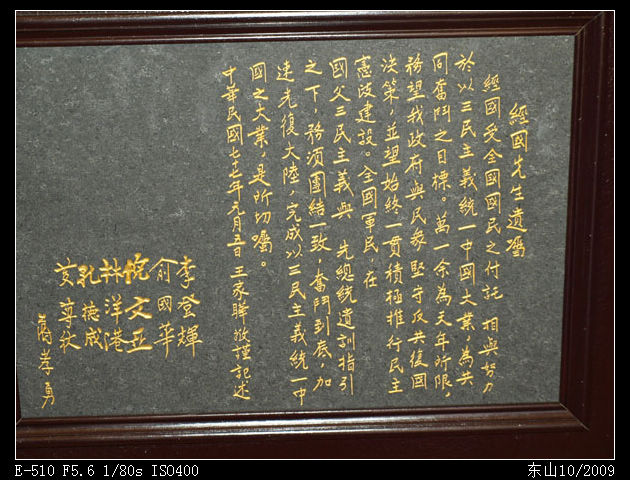 經國先生遺囑
經國受全國國民之付託相與努力
於以三民主義統一中國大業，為共
同奮鬥之目標。萬一余為天年所限，
務望我政府與民眾堅守反共復國
決策，並望始終一貫積極推行民主
憲政建設。全國軍民，在
國父三民主義與 先總統遺訓指引
之下，務須團結一致，奮鬥到底，加
速光復大陸，完成以三民主義統一中
國之大業，是所切囑。
中華民國七十七年元月五日 王家驊敬謹記述
李登輝
俞國華
倪文亞
林洋港
孔德成
蔣孝勇
E-510 F5.6 1/80s ISO400
东山10/2009